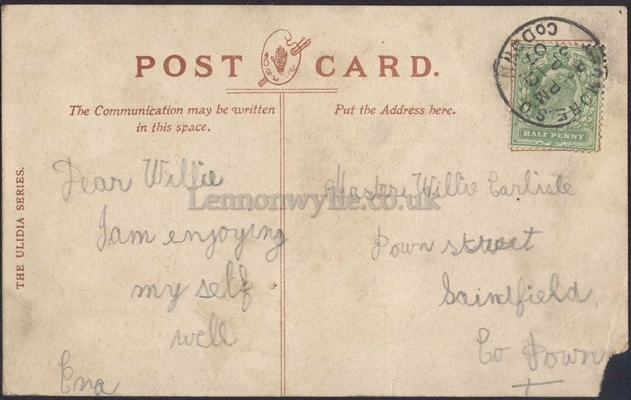 POST CARD.
The Communication may be written
in this space.
Put the Address here.
THE ULIDIA SERIES.
HALF PENNY
Lennonwylie.co.uk
Dear Willie
I am enjoying
my self
well
Ena
Master Willie Carlisle
Down street
Saintfield
Co Down